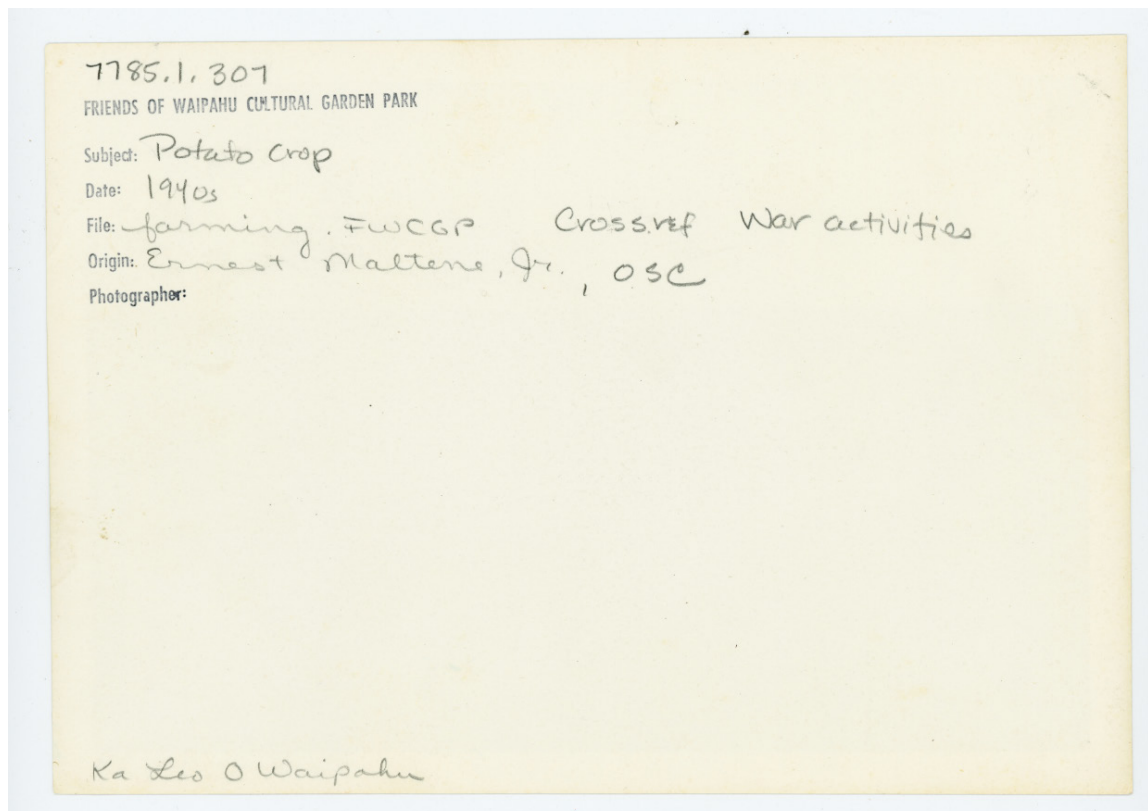 7785.1.307
FRIENDS OF WAIPAHU CULTURAL GARDEN PARK
Subject: Potato Crop
Date: 1940s
File: farming. FWCGP Crossref War activities
Origin: Ernest Maltene, Jr., OSC
Photographer:
Ka Leo O Waipahu